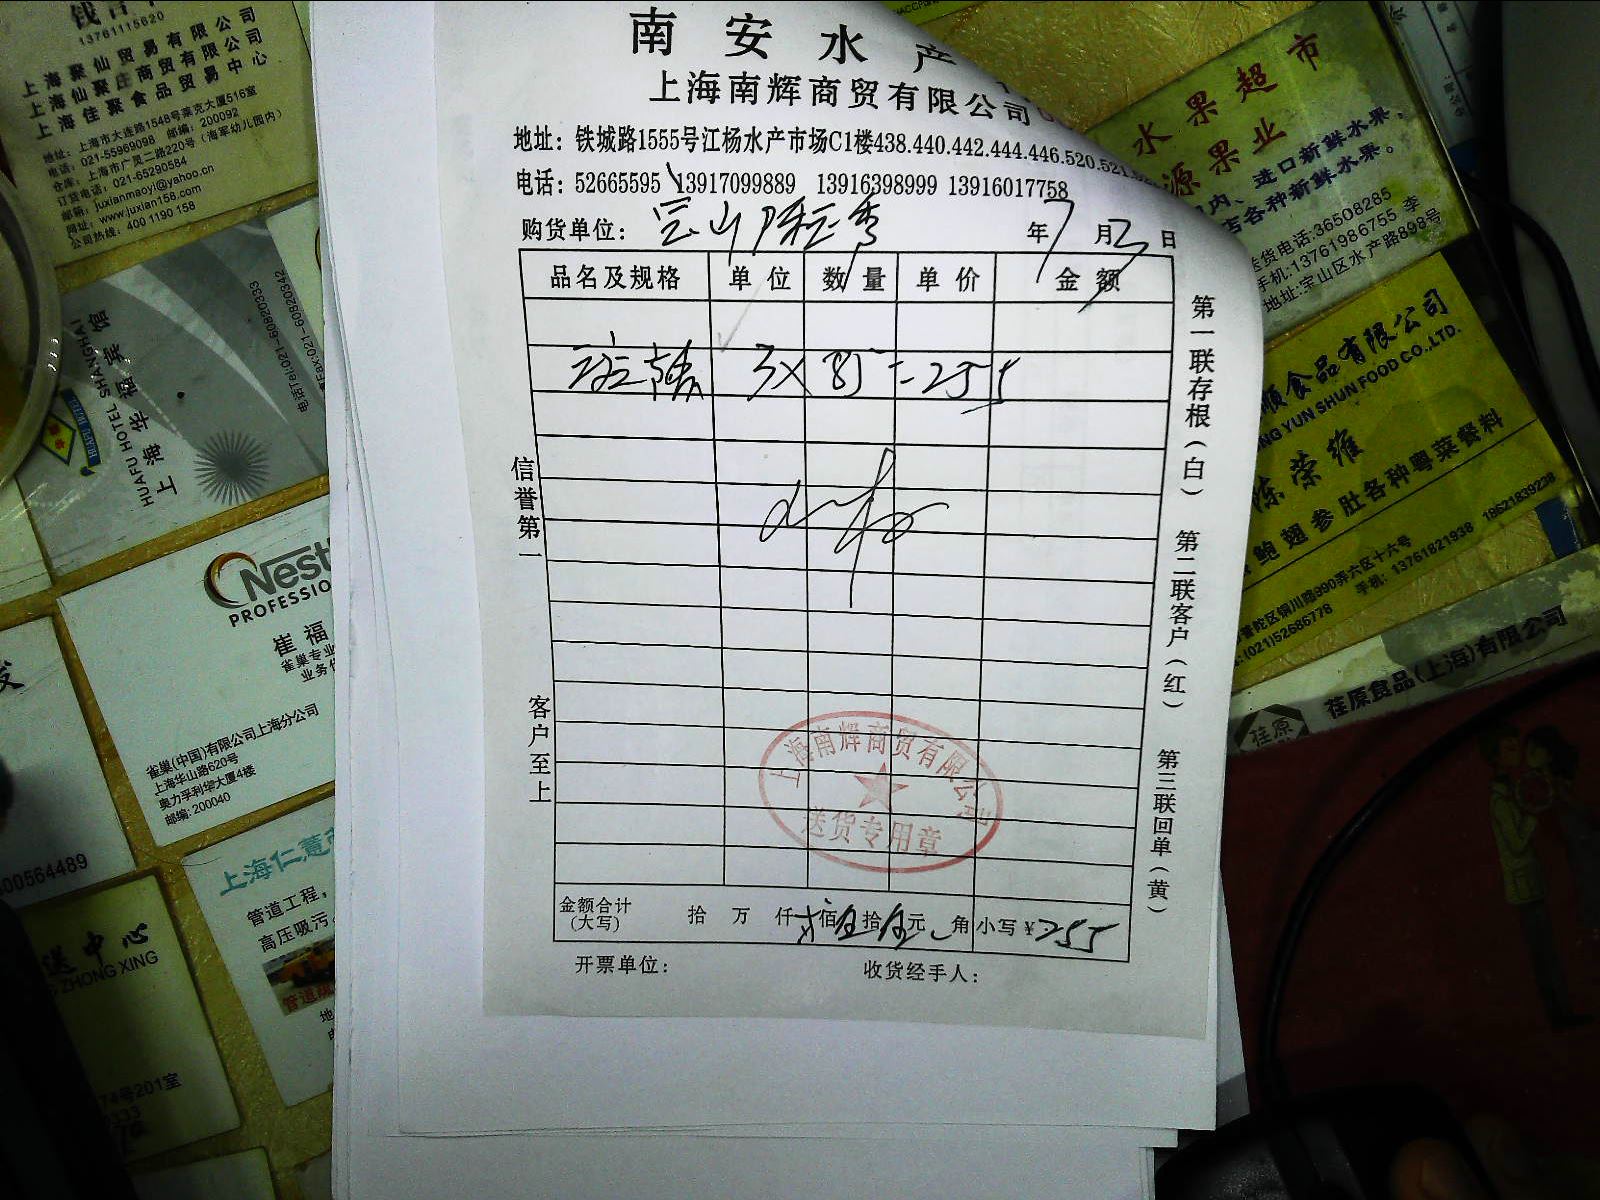 13761115620
上海聚仙贸易有限公司
上海仙聚庄商贸有限公司
上海佳聚食品贸易中心
地址：上海市大连路1548号莱克大厦516室
电话：021-55969098 邮编：200092
仓库：上海市广灵二路220号（海军幼儿园内）
订货电话：021-65290584
邮箱：juxianmaoyi@yahoo.cn
网址：www.juxian158.com
公司热线：400 1190 158
上海华福宾馆
HUAFU HOTEL SHANGHAI
电话Tel:021-60820333
Fax:021-60820342
Nest
PROFESSIO
崔福
雀巢专业
业务代
雀巢(中国)有限公司上海分公司
上海华山路620号
奥力孚利华大厦4楼
邮编：200040
00564489
上海仁慧
管道工程，
高压吸污
送中心
ZHONG XING
74号201室
南安水产
上海南辉商贸有限公司
地址：铁城路1555号江杨水产市场C1楼438.440.442.444.446.520.521
电话：52665595 13917099889 13916398999 13916017758
购货单位：宝山陈玉秀
年7月3日
品名及规格 单位 数量 单价 金额
3×85=255
信誉第一
客户至上
第一联存根（白） 第二联客户（红） 第三联回单（黄）
上海南辉商贸有限公司
送货专用章
金额合计(大写) 拾 万 仟 贰佰伍拾伍元 角 小写￥255
开票单位： 收货经手人：
水果超市
源果业
内、进口新鲜水果，
店各种新鲜水果。
送货电话:36508285
手机:13761986755 李
地址:宝山区水产路898号
顺食品有限公司
NG YUN SHUN FOOD CO.,LTD.
陈荣维
鲍翅参肚各种粤菜餐料
普陀区铜川路990弄六区十六号
(021)52686778 手机：13761821938 18621839238
荏原食品(上海)有限公司
荏原